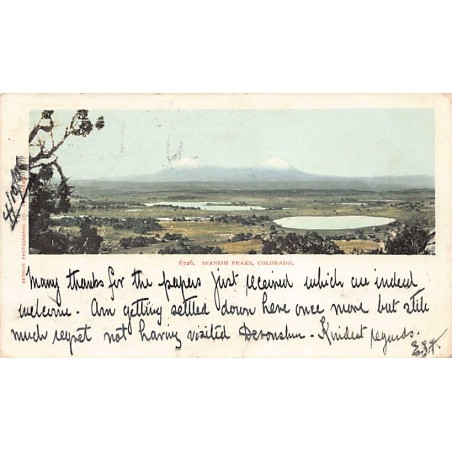 6726. SPANISH PEAKS, COLORADO.
Many thanks for the papers just received which are indeed
welcome. Am getting settled down here once more but still
much regret not having visited Devonshire - Kindest regards.
DETROIT PHOTOGRAPHIC CO.